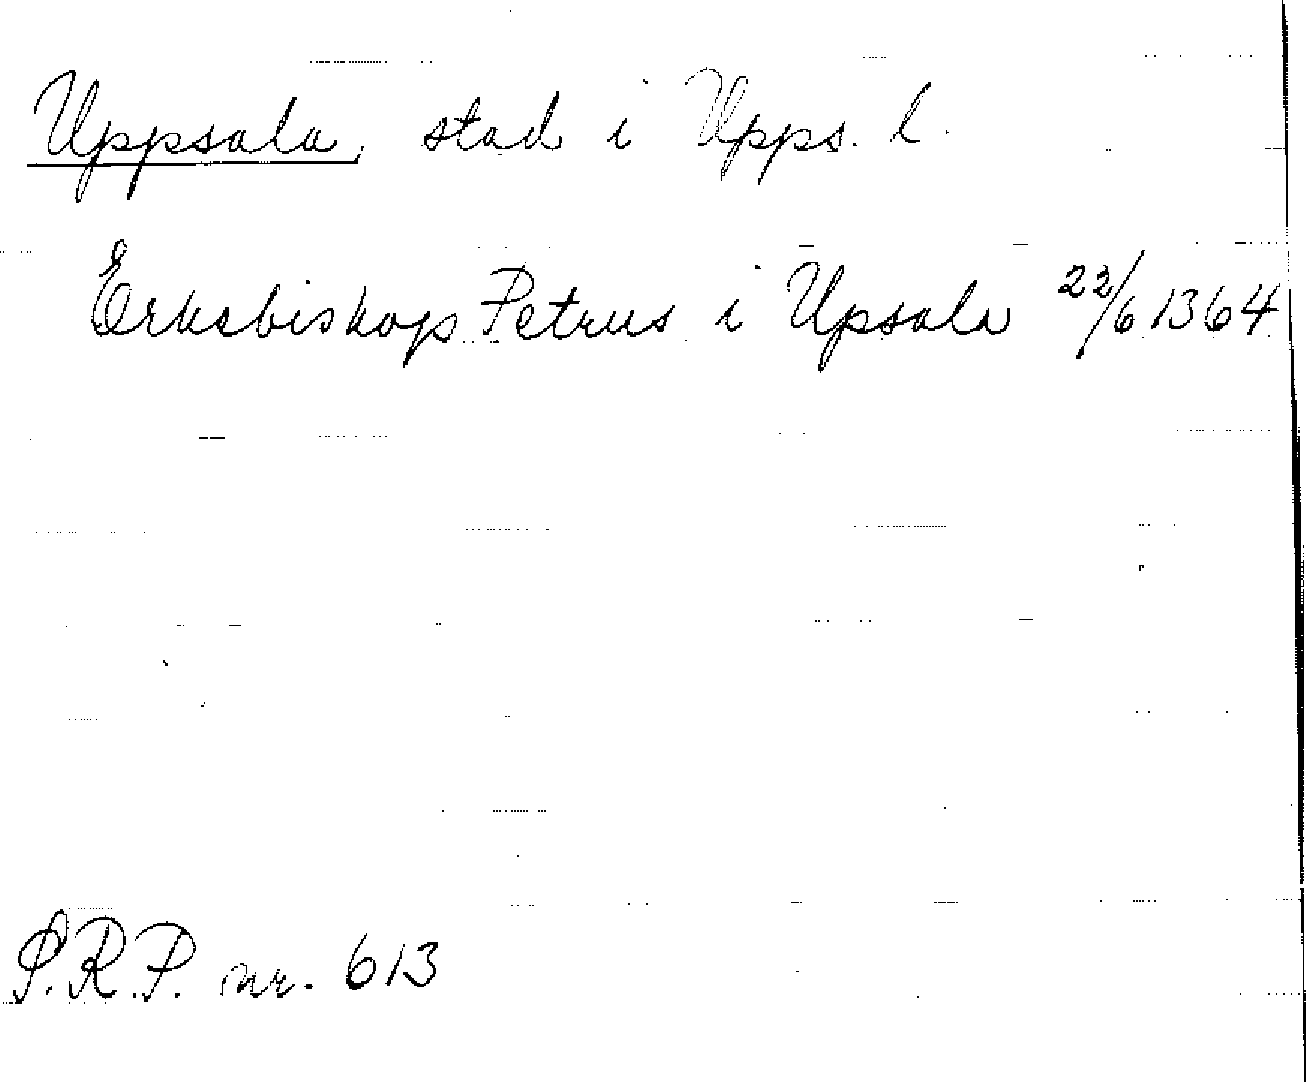 Uppsala, stad i Upps. l.
Erkebiskop Petrus i Upsala 22/6 1364
S.R.P. nr. 613